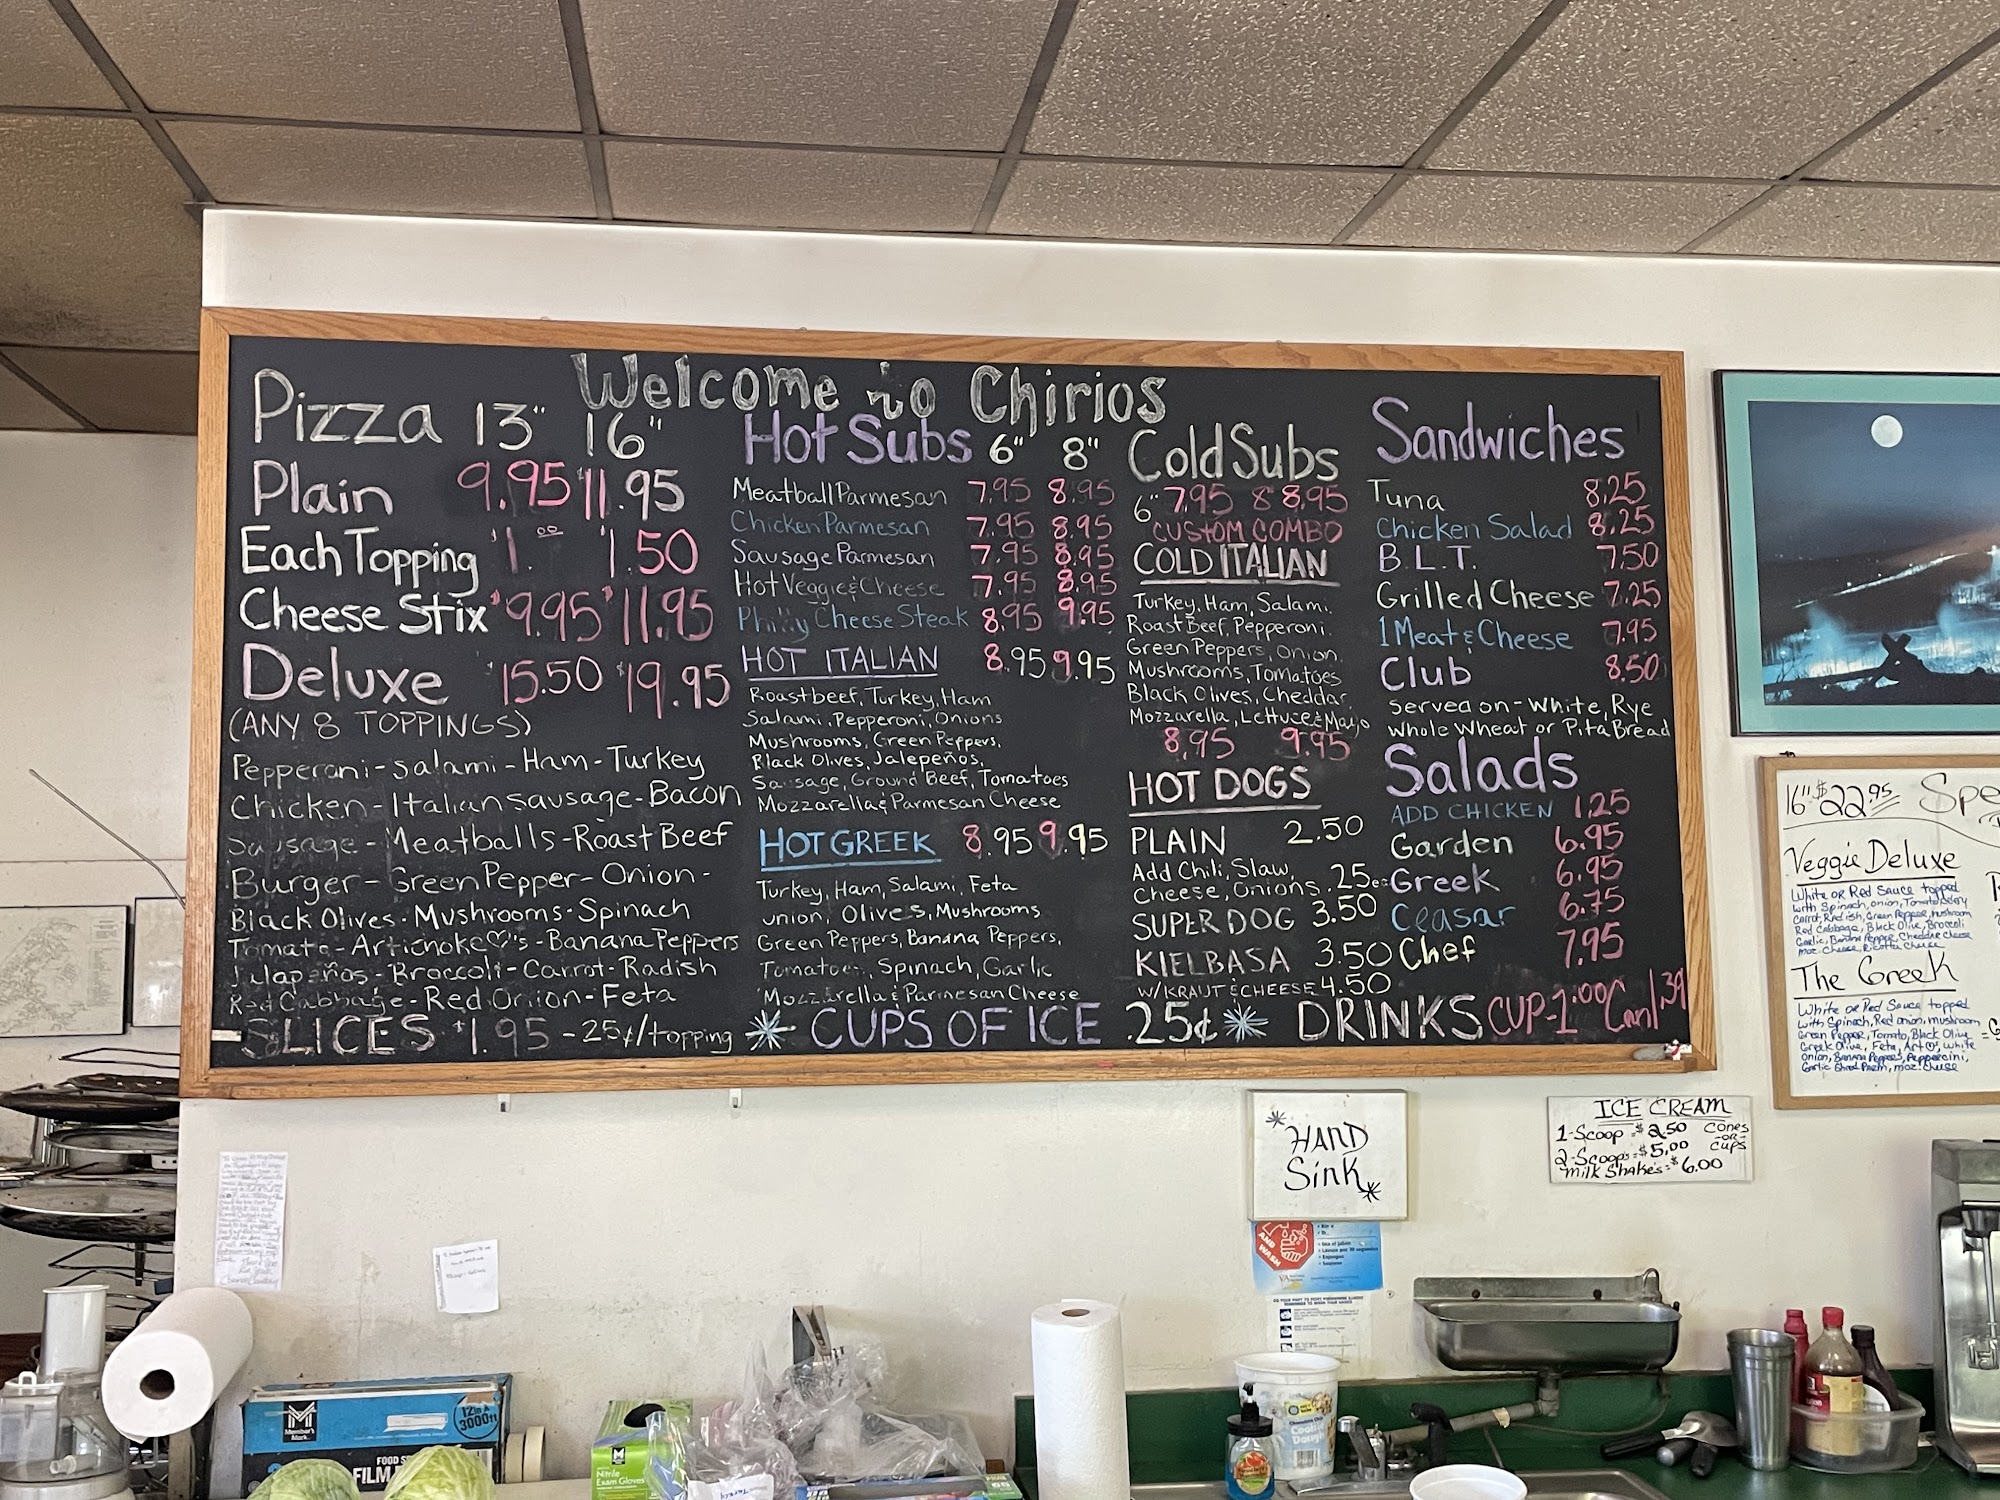 Welcome to Chirios
Pizza 13" 16"
Plain 9.95 11.95
Each Topping $1.00 $1.50
Cheese Stix $9.95 $11.95
Deluxe $15.50 $19.95
(ANY 8 TOPPINGS)
Pepperoni-Salami-Ham-Turkey
Chicken-Italian Sausage-Bacon
Sausage-Meatballs-Roast Beef
Burger-Green Pepper-Onion-
Black Olives-Mushrooms-Spinach
Tomato-Artichoke♡'s-Banana Peppers
Jalapeños-Broccoli-Carrot-Radish
Red Cabbage-Red Onion-Feta
SLICES $1.95 -25¢/topping
Hot Subs 6" 8"
Meatball Parmesan 7.95 8.95
Chicken Parmesan 7.95 8.95
Sausage Parmesan 7.95 8.95
Hot Veggie & Cheese 7.95 8.95
Philly Cheese Steak 8.95 9.95
HOT ITALIAN 8.95 9.95
Roastbeef, Turkey, Ham
Salami, Pepperoni, Onions
Mushrooms, Green Peppers,
Black Olives, Jalepeños,
Sausage, Ground Beef, Tomatoes
Mozzarella & Parmesan Cheese
HOT GREEK 8.95 9.95
Turkey, Ham, Salami, Feta
Onion, Olives, Mushrooms
Green Peppers, Banana Peppers,
Tomatoes, Spinach, Garlic
Mozzarella & Parmesan Cheese
CUPS OF ICE .25¢
Cold Subs
6" 7.95 8 8.95
CUSTOM COMBO
COLD ITALIAN
Turkey, Ham, Salami,
Roast Beef, Pepperoni,
Green Peppers, Onion,
Mushrooms, Tomatoes
Black Olives, Cheddar,
Mozzarella, Lettuce & Mayo
8.95 9.95
HOT DOGS
PLAIN 2.50
Add Chili, Slaw,
Cheese, Onions .25ea
SUPER DOG 3.50
KIELBASA 3.50
W/KRAUT & CHEESE 4.50
DRINKS CUP-1.00 Can 1.39
Sandwiches
Tuna 8.25
Chicken Salad 8.25
B.L.T. 7.50
Grilled Cheese 7.25
1 Meat & Cheese 7.95
Club 8.50
Served on-White, Rye
Whole Wheat or Pita Bread
Salads
ADD CHICKEN 1.25
Garden 6.95
Greek 6.95
Ceasar 6.75
Chef 7.95
16" $22.95 Spe
Veggie Deluxe
White or Red Sauce topped
with Spinach, onion, Tomato,
Carrot, Radish, Green Pepper, mushroom
Red Cabbage, Black Olive, Broccoli
Garlic, Banana Pepper, Cheddar Cheese
moz. Cheese, Ricotta Cheese
The Greek
White or Red Sauce topped
with Spinach, Red onion, mushroom
Green Pepper, Tomato, Black Olive
Greek Olive, Feta, Art♡, White
Onion, Banana Peppers, Pepperoncini,
Garlic Parm, moz. Cheese
HAND
Sink
AND WASH
ICE CREAM
1-Scoop=$2.50 CONES
-OR-
2-Scoops=$5.00 CUPS
Milk Shakes=$6.00
Member's Mark
12in x 3000ft
FOOD
FILM
Nitrile
Exam Gloves
Cookie
Dough